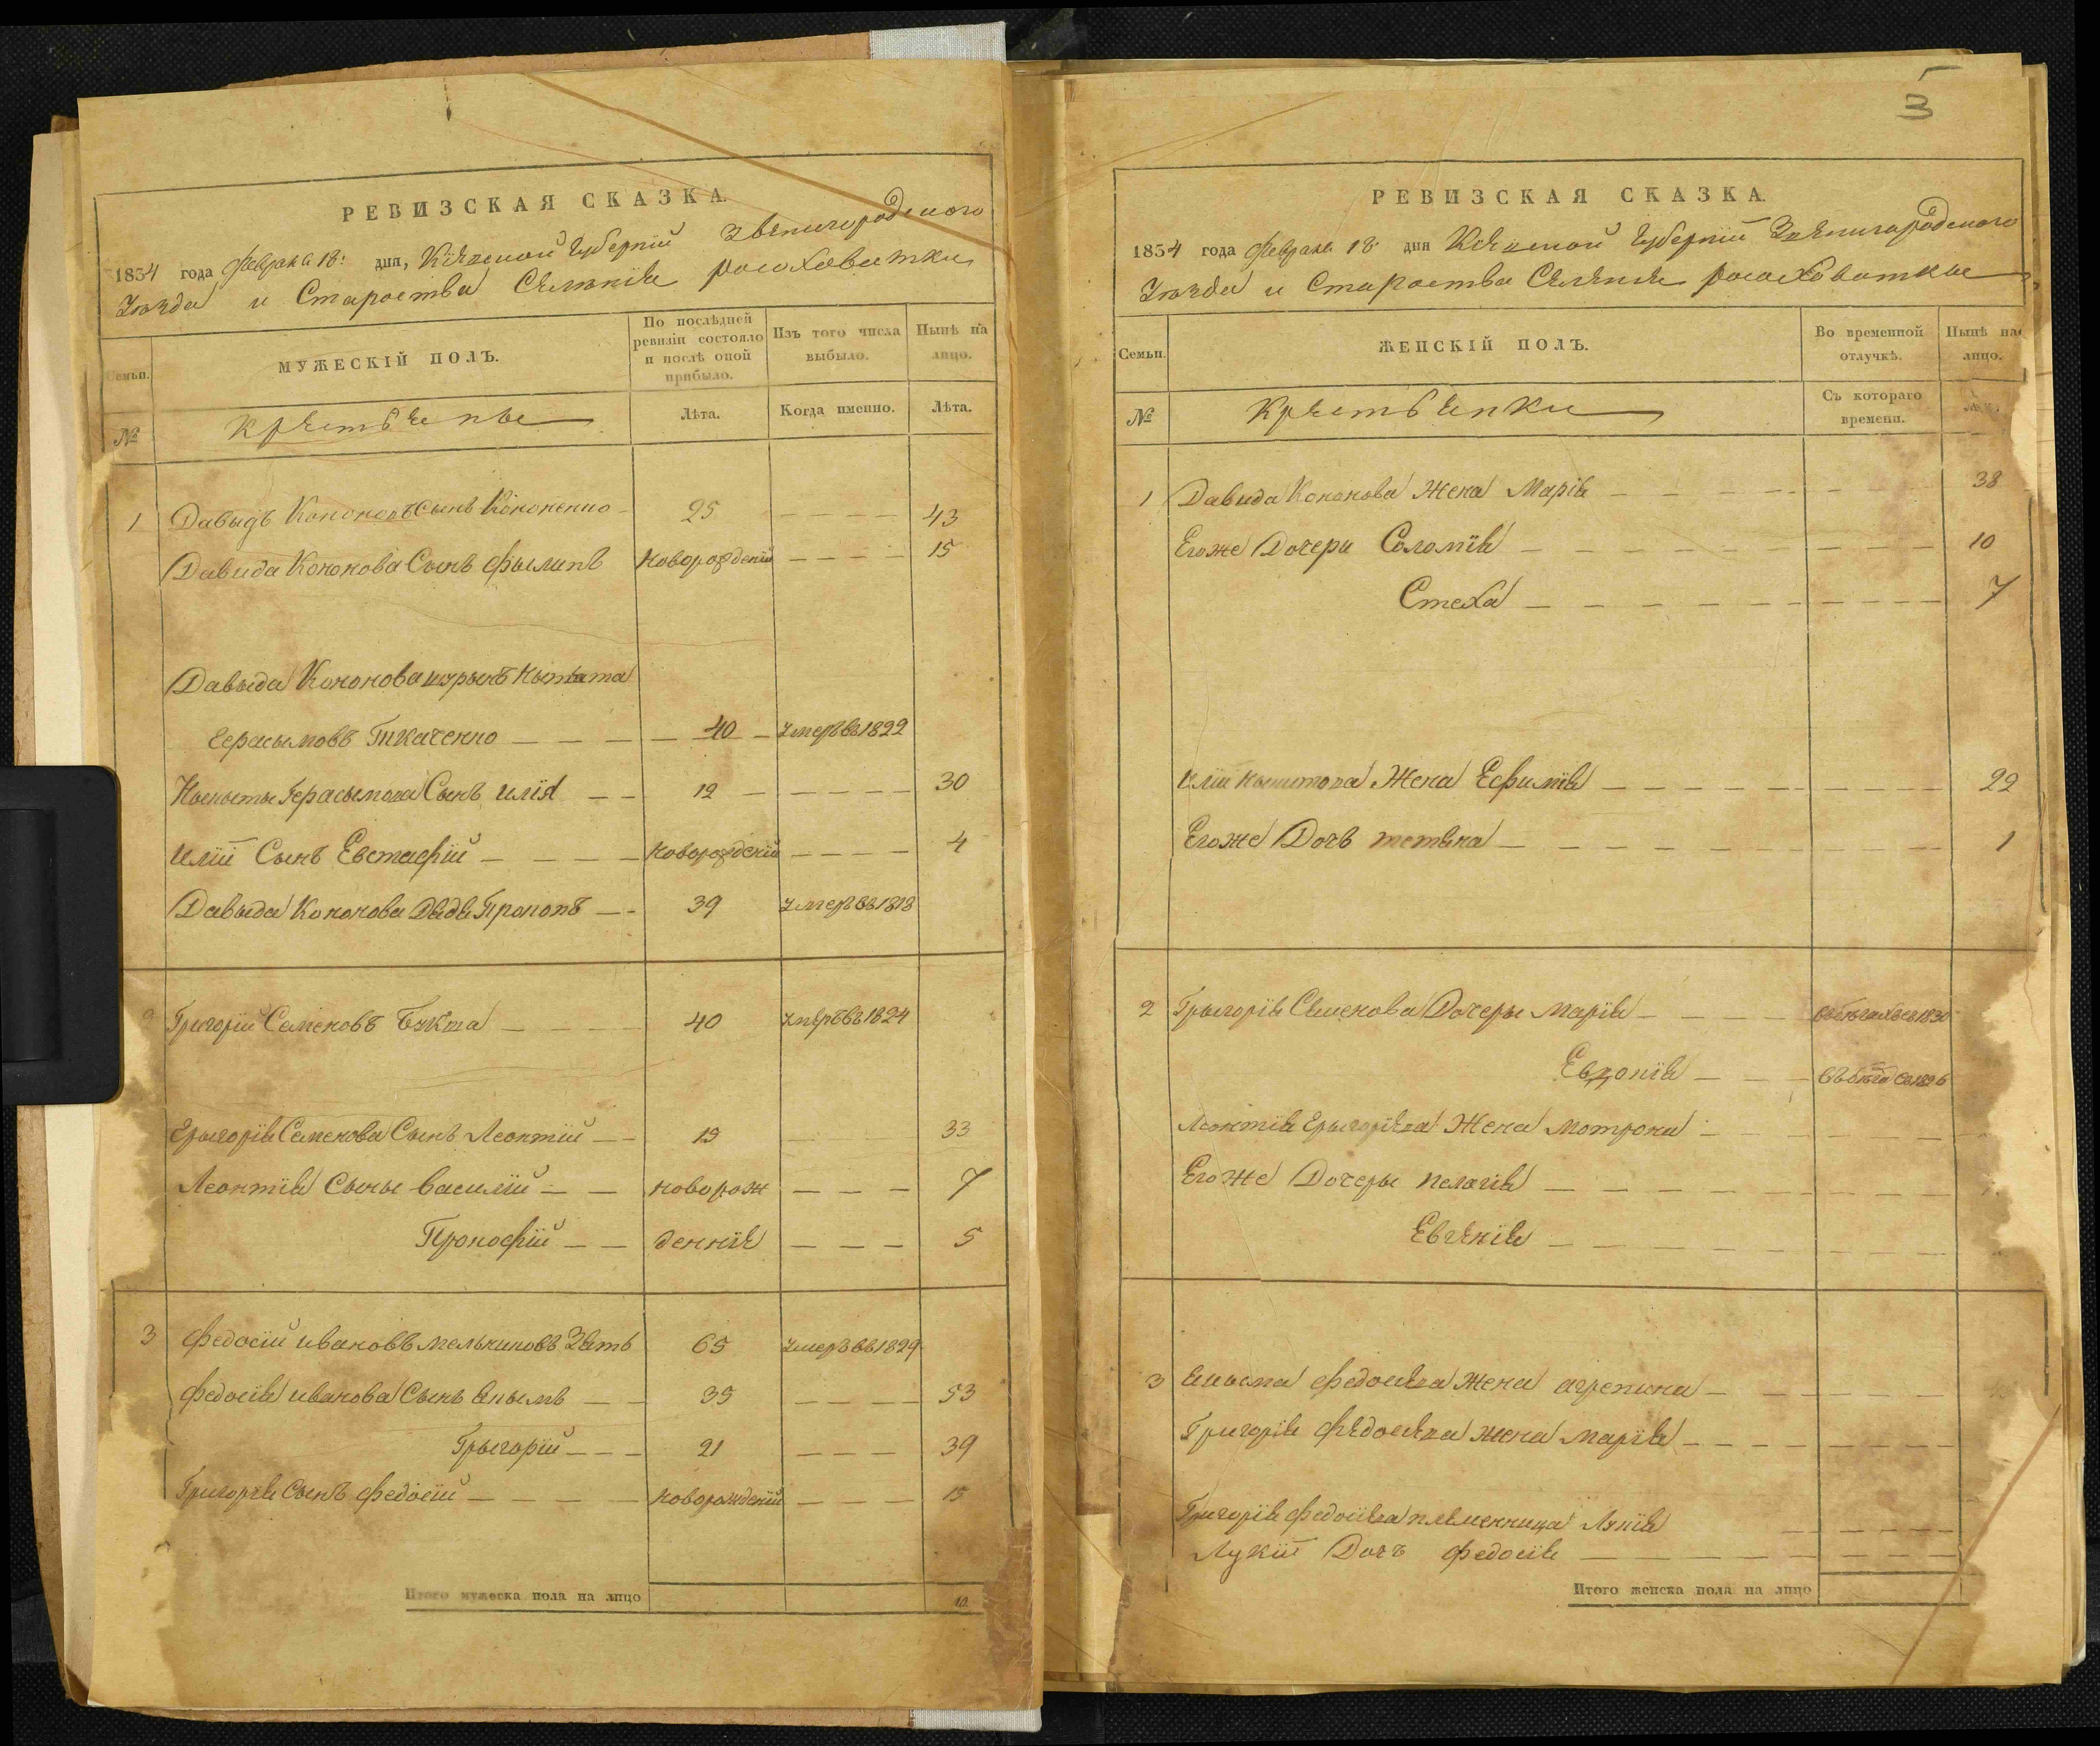 РЕВИЗСКАЯ СКАЗКА.
1834 года февраля 18: дня, Кіевской Губерніи Звенигородского
Уезда и Староства Селенія росоховатки
Семьи.
МУЖЕСКІЙ ПОЛЪ.
По послѣдней ревизіи состояло и послѣ оной прибыло.
Изъ того числа выбыло.
Нынѣ на лицо.
№
крестьяне
Лѣта.
Когда именно.
Лѣта.
1 Давыдъ Кононовъ Сынъ Кононенко 25 43
Давида Кононова Сынъ фылипъ новорожденій 15
Давыда Кононова шурынъ Никита
Герасымовъ Ткаченко 40 умеръ въ 1822
Никиты Герасымова Сынъ илія 12 30
иліи Сынъ Евстафій новорожденій 4
Давыда Кононова Дядя Прокопъ 39 умеръ въ 1818
2 Григорій Семеновъ Букта 40 умеръ въ 1824
Грыгорія Семенова Сынъ Леонтій 15 33
Леонтія Сыны василій новорож 7
Прокофій денніе 5
3 федосій ивановъ мельниковъ Зять 65 умеръ въ 1829
федосія иванова Сынъ Якымъ 35 53
Грыгорій 21 39
Григорія Сынъ федосій новорожденій 15
Итого мужеска пола на лицо 10
3
РЕВИЗСКАЯ СКАЗКА.
1834 года февраля 18 дня Кіевской Губерніи Звенигородского
Уезда и Староства Селенія росоховатки
Семьи.
ЖЕНСКІЙ ПОЛЪ.
Во временной отлучкѣ.
Нынѣ на лицо.
№
Крестьянки
Съ котораго времени.
1 Давида Кононова Жена Марія 38
Егоже Дочери Соломія 10
Стеха 7
иліи Никитова Жена Ефимія 22
Егоже Дочь тетяна 1
2 Грыгорія Семенова Дочеры Марія въ бегахъ съ 1830
Евдокія
Леонтія Грыгоріева Жена мотрона
Егоже Дочеры пелагія
Евгенія
3 Якыма федосіева Жена агрепина
Григорія федосіева жена марія
Григорія федосіева племенница Лукія
Лукіи Дочъ федосія
Итого женска пола на лицо